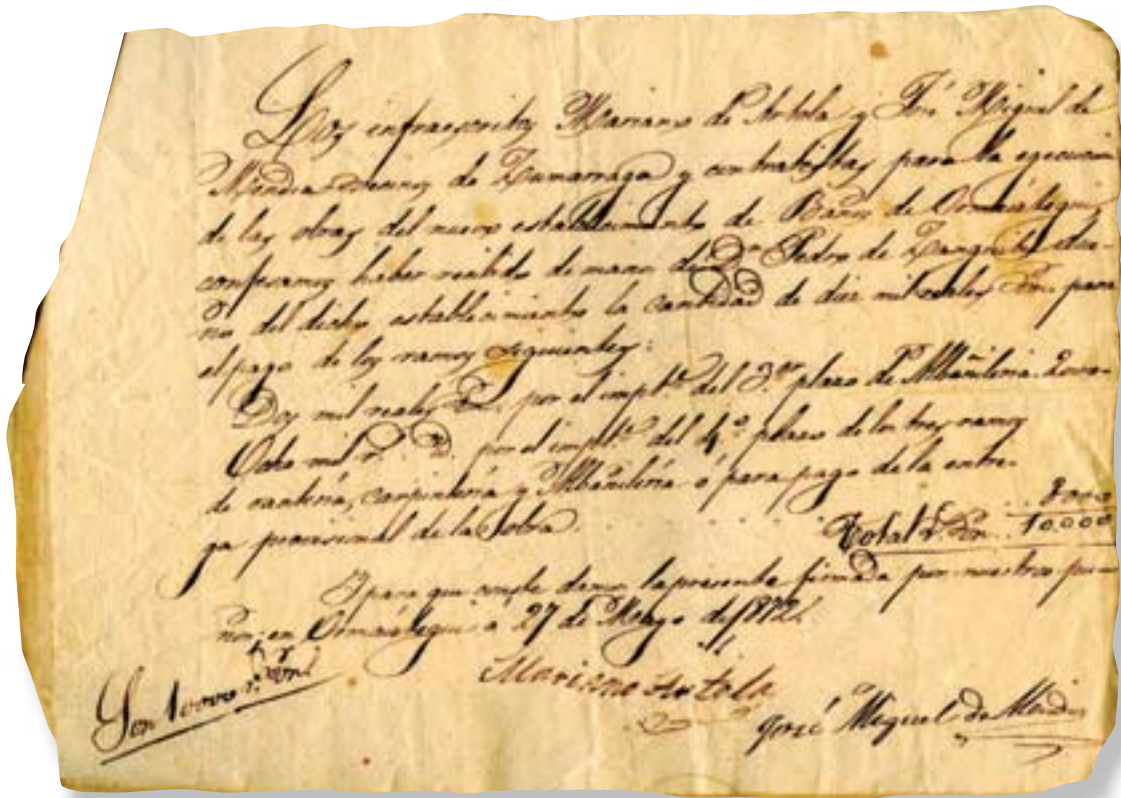 Los infraescritos Mariano de Artola y José Miguel de
Mendia vecinos de Zumarraga y contratistas para la egecucion
de las obras del nuevo establecimiento de Baños de Ormaiztegui,
confesamos haber recibido de mano de Dn Pedro de Zangitu, due-
ño del dicho, establecimiento la cantidad de diez mil reales Vn. para
el pago de los ramos siguientes:
Dos mil reales Vn. por el impte. del 3.er plazo de Albañileria. 2000-
Ocho mil r.s Vn. por el impte. del 4.o plazo de los tres ramos
de canteria, carpinteria y Albañileria ó para pago de la entre-
ga provisional de la obra. 8000
Total r.s Vn. 10.000
Y para que conste damos la presente firmada por nuestros pu-
nos: en Ormaiztegui á 27 de Mayo de 1872.
Son 10000 r.s Vn.
Mariano Artola
José Miguel de Mendia